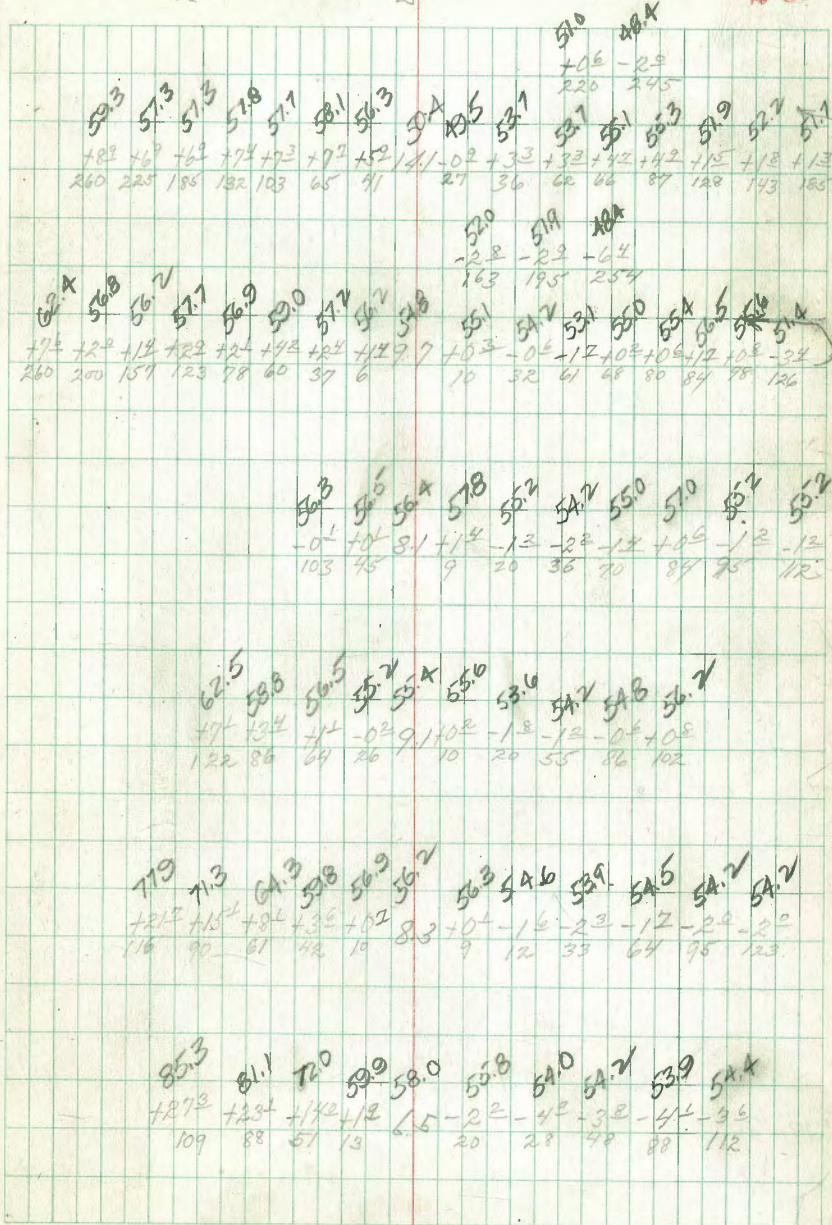 51.0 48.4
+0 6 -2 0
220 245
59.3 57.3 57.3 57.8 57.7 58.1 56.3 50.4 49.5 53.7 53.7 55.1 55.3 51.9 52.2 51.7
+8 9 +6 9 +6 9 +7 4 +7 3 +7 7 +5 9 14.1 -0 9 +3 3 +3 3 +4 7 +4 9 +1 5 +1 8 +1 3
260 225 185 132 103 65 41 27 36 62 66 87 128 143 185
52.0 51.9 48.4
-2 8 -2 9 -6 4
163 195 254
62.4 56.8 56.2 57.7 56.9 59.0 57.2 56.2 54.8 55.1 54.2 53.1 55.0 55.4 56.5 55.6 51.4
+7 6 +2 0 +1 4 +2 9 +2 1 +4 2 +2 4 +1 4 9.7 +0 3 -0 6 -1 7 +0 2 +0 6 +1 7 +0 8 -3 4
260 200 157 123 78 60 37 6 10 32 61 68 80 84 98 126
56.3 56.5 56.4 57.8 55.2 54.2 55.0 57.0 55.2 55.2
-0 1 +0 1 8.1 +1 4 -1 2 -2 2 -1 4 +0 6 -1 2 -1 2
103 45 9 20 36 70 84 95 112
62.5 58.8 56.5 55.2 55.4 55.6 53.6 54.2 54.8 56.2
+7 1 +3 4 +1 1 -0 2 9.1 +0 2 -1 8 -1 2 -0 6 +0 8
122 86 64 26 10 20 55 86 102
77.9 71.3 64.3 59.8 56.9 56.2 56.3 54.6 53.9 54.5 54.2 54.2
+21 7 +15 1 +8 1 +3 6 +0 7 8.3 +0 1 -1 6 -2 3 -1 7 -2 0 -2 0
116 90 61 42 10 9 12 33 64 95 123
85.3 81.1 72.0 59.9 58.0 55.8 54.0 54.2 53.9 54.4
+27 3 +23 1 +14 0 +1 9 6.5 -2 2 -4 0 -3 8 -4 1 -3 6
109 88 51 13 20 28 48 88 112